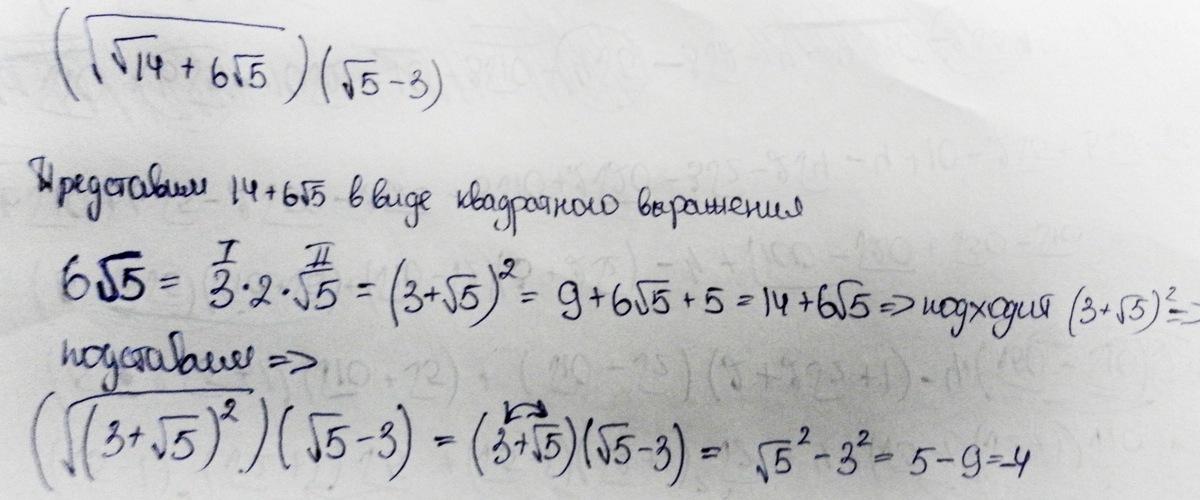 (√(√14 + 6√5))(√5 - 3)
Представим 14+6√5 в виде квадратного выражения
6√5 = 3·2·√5 = (3+√5)² = 9+6√5+5 = 14+6√5 => подходит (3+√5)² =>
I II
подставим =>
(√(3+√5)²)(√5-3) = (3+√5)(√5-3) = √5² - 3² = 5-9=-4